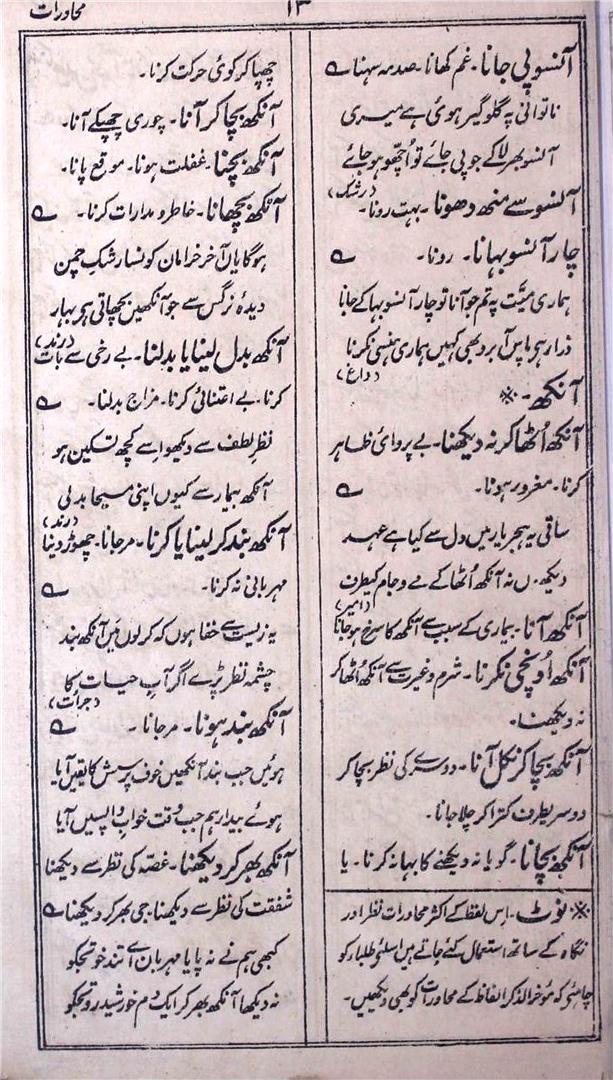 ۱۳
محاورات
آنسو پی جانا۔ غم کھانا۔ صدمہ سہنا ؎
ناتوانی یہ گلوگیر ہوئی ہے میری
آنسو بھر لاکے جو پی جائے تو اُچھو ہو جائے
(رشک)
آنسو سے منھ دھونا۔ بہت رونا۔
چار آنسو بہانا۔ رونا۔ ؎
ہماری میّت پہ تم جو آنا تو چار آنسو بہا کے جانا
ذرا رہے پاس آبرو بھی کہیں ہماری ہنسی نکرنا
(داغ)
آنکھ۔ ※
آنکھ اُٹھا کر نہ دیکھنا۔ بے پروائی ظاہر
کرنا۔ مغرور ہونا۔ ؎
ساقی یہ ہجر یار میں دل سے کیا ہے عہد
دیکھوں نہ آنکھ اُٹھا کے مے و جام کیطرف
(امیر)
آنکھ آنا۔ بیماری کے سبب سے آنکھ کا سرخ ہو جانا
آنکھ اُونچی نکرنا۔ شرم و غیرت سے آنکھ اُٹھا کر
نہ دیکھنا۔
آنکھ بچا کر نکل آنا۔ دوسرے کی نظر بچا کر
دوسریطرف کترا کر چلا جانا۔
آنکھ بچانا۔ گویا نہ دیکھنے کا بہانہ کرنا۔ یا
※ نوٹ۔ اِس لفظ کے اکثر محاورات نظر اور
نگاہ کے ساتھ استعمال کئے جاتے ہیں اسلئے طلبا کو
چاہئے کہ مؤخرالذکر الفاظ کے محاورات کو بھی دیکھیں۔
چھپا کر کوئی حرکت کرنا۔
آنکھ بچا کر آنا۔ چوری چھپکے آنا۔
آنکھ بچنا۔ غفلت ہونا۔ موقع پانا۔
آنکھ بچھانا۔ خاطر و مدارات کرنا۔ ؎
ہوگا یاں آخر خراماں کونسا رشک چمن
دیدۂ نرگس سے جو آنکھیں بچھاتی ہے بہار
(رند)
آنکھ بدل لینا یا بدلنا۔ بے رخی سے بات
کرنا۔ بے اعتنائی کرنا۔ مزاج بدلنا۔ ؎
نظر لطف سے دیکھو اسے کچھ تسکین ہو
آنکھ بیمار سے کیوں اپنی مسیحا بدلی
(رند)
آنکھ بند کر لینا یا کرنا۔ مرجانا۔ چھوڑ دینا
مہربانی نہ کرنا۔ ؎
یہ زیست سے خفا ہوں کہ کر لوں میں آنکھ بند
چشمہ نظر پڑے اگر آبِ حیات کا
(جرأت)
آنکھ بند ہونا۔ مرجانا۔ ؎
ہوئیں جب بند آنکھیں خوف پرسش کا یقیں آیا
ہوئے بیدار ہم جب وقت خواب واپسیں آیا
آنکھ بھر کر دیکھنا۔ غصّہ کی نظر سے دیکھنا
شفقت کی نظر سے دیکھنا۔ جی بھر کر دیکھنا ؎
کبھی ہم نے نہ پایا مہربان اے تند خو تجکو
نہ دیکھا آنکھ بھر کر ایک دم خورشید رو تجکو